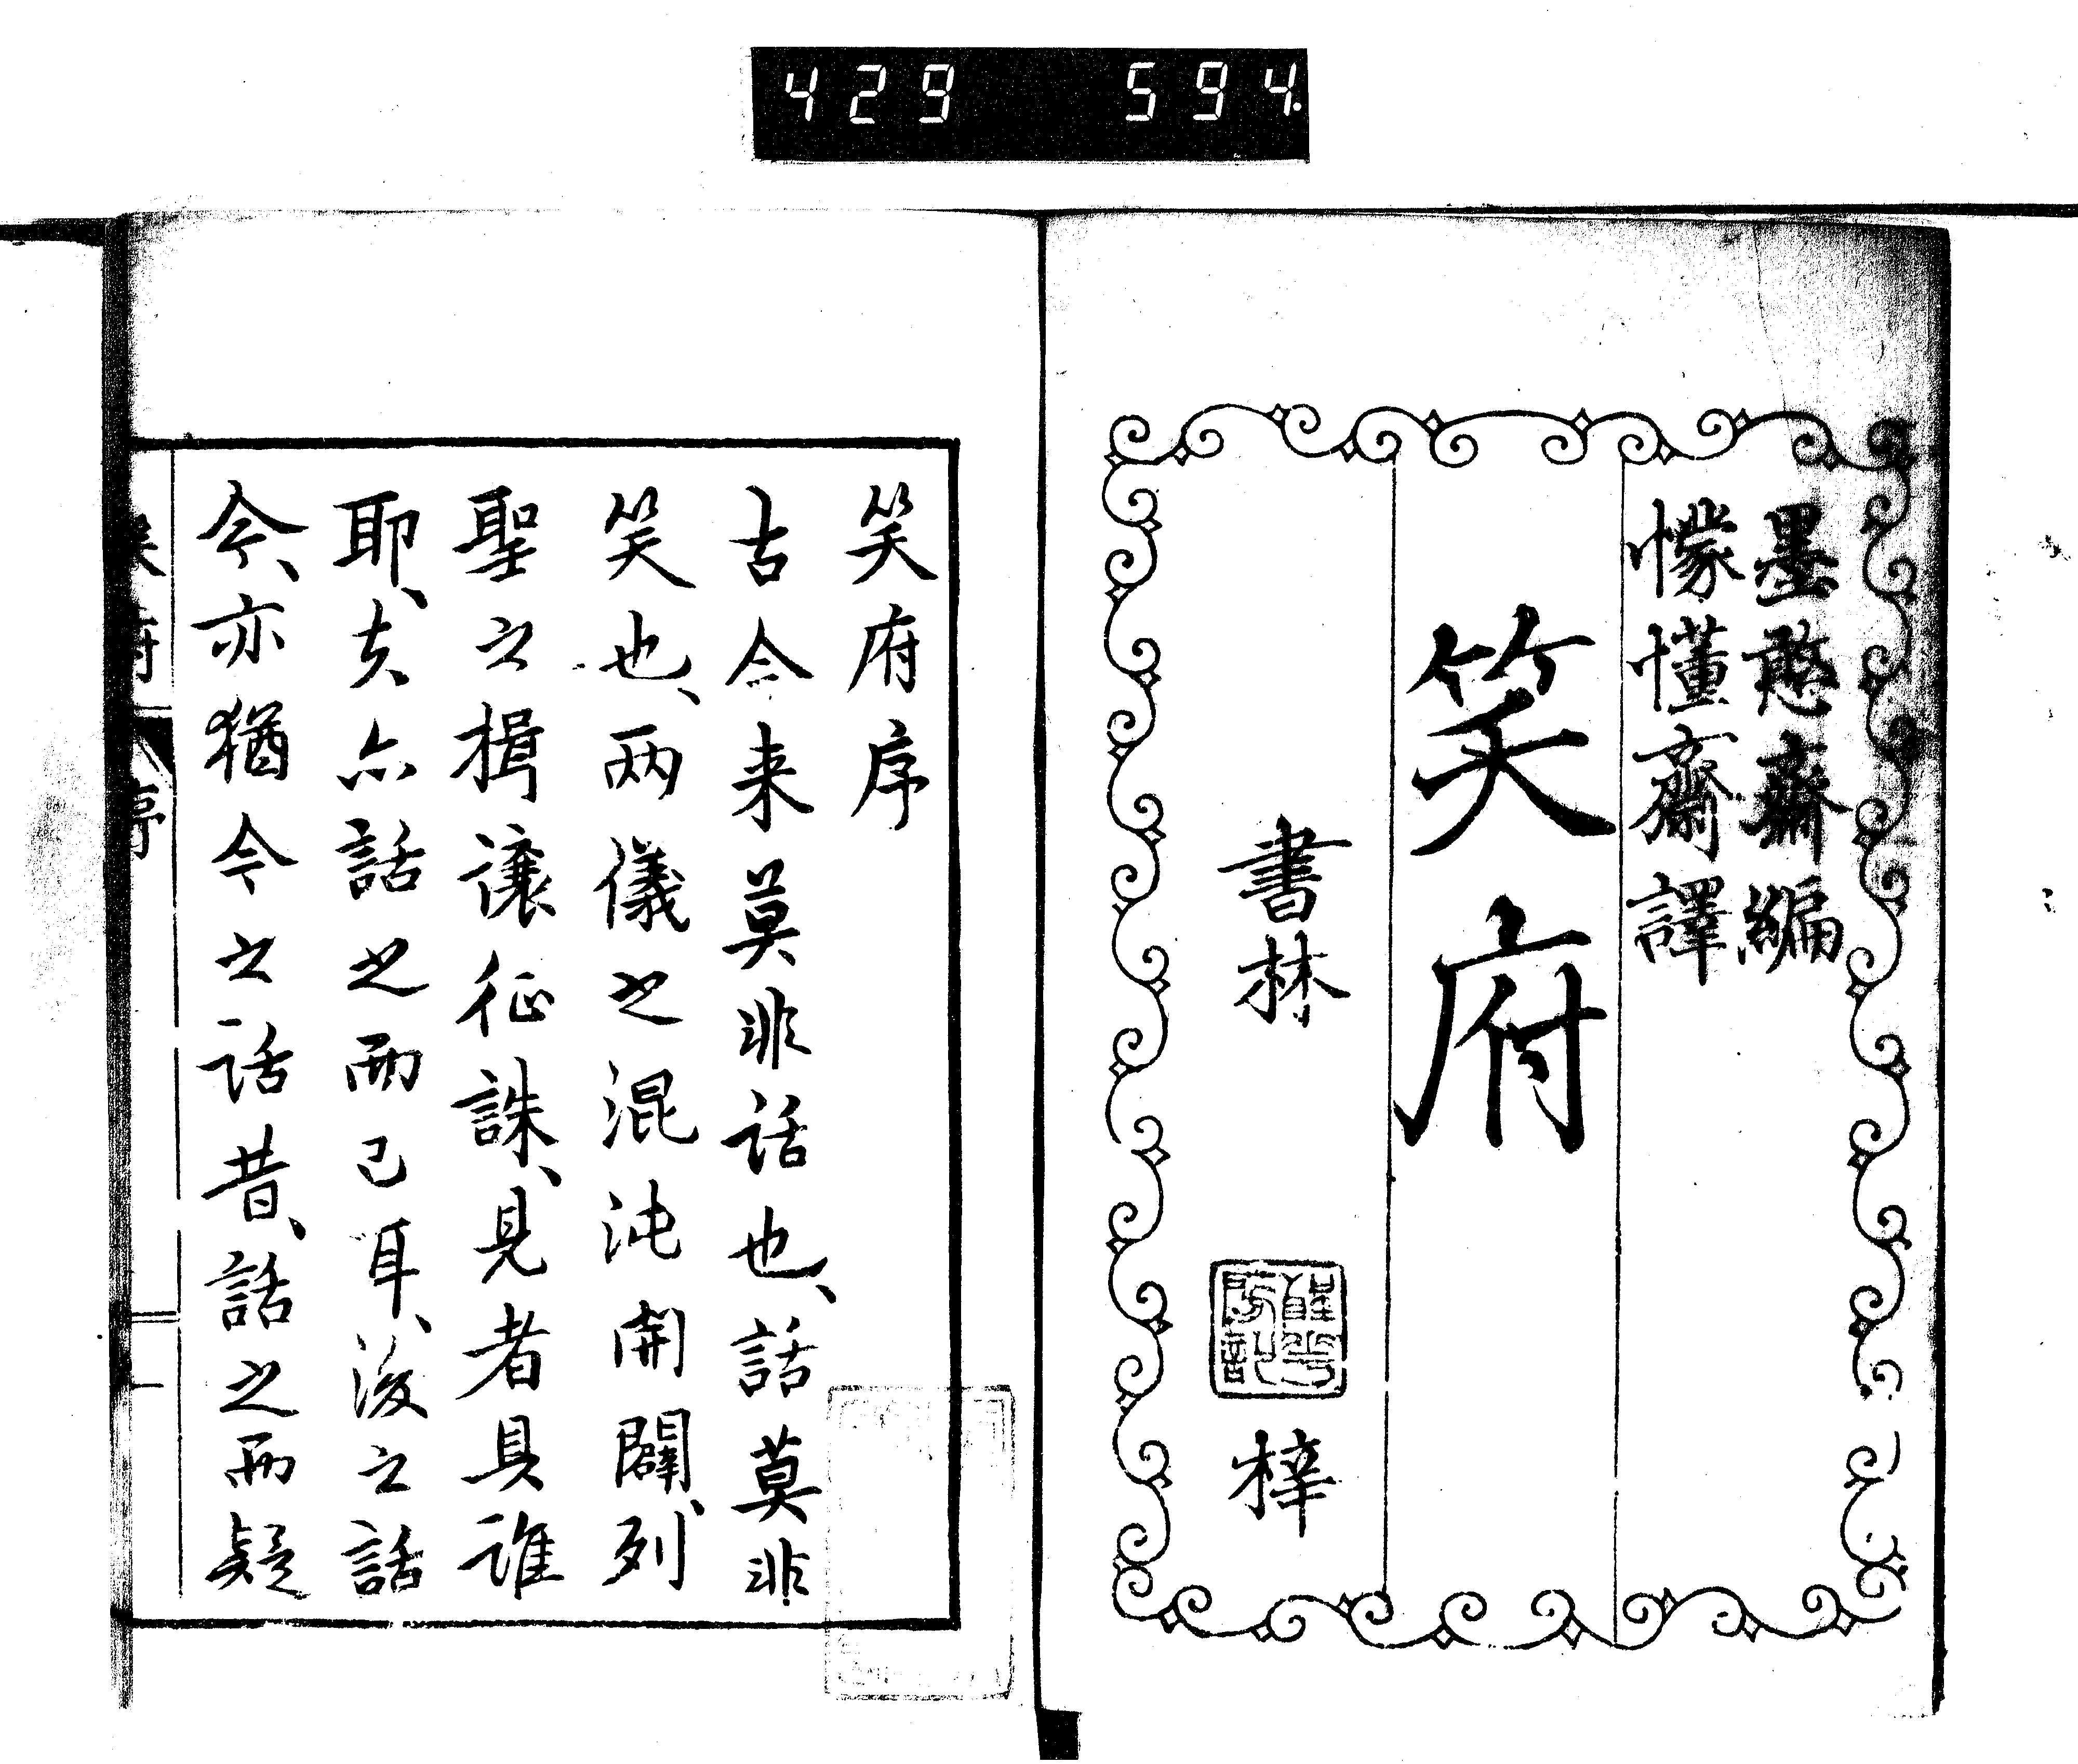 429 594.
墨憨齋編
懞懂齋譯
笑府
書林
梓
笑府序
古今来莫非話也、話莫非
笑也、兩儀之混沌開闢、列
聖之揖讓征誅、見者具誰
耶、夫亦話之而已耳、後之話
今、亦猶今之話昔、話之而疑